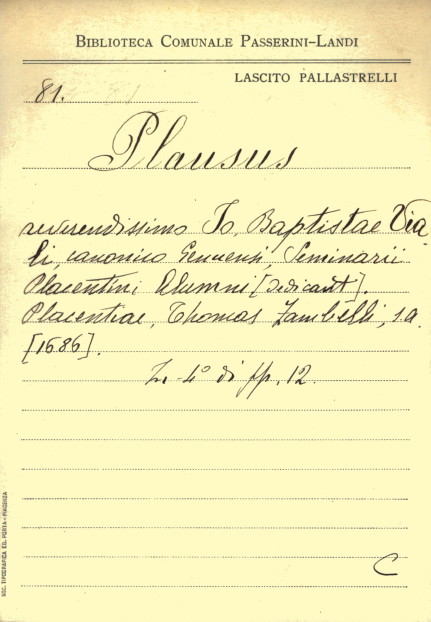 BIBLIOTECA COMUNALE PASSERINI-LANDI
LASCITO PALLASTRELLI
81.
Plausus
reverendissimo Io, Baptistae Via
li, canonico Genuensi, Seminarii
Placentini Alumni [dedicant].
Placentiae, Thomas Zambelli, s.a.
[1686].
In 4° di pp. 12.
C
SOC. TIPOGRAFICA ED. PORTA - PIACENZA